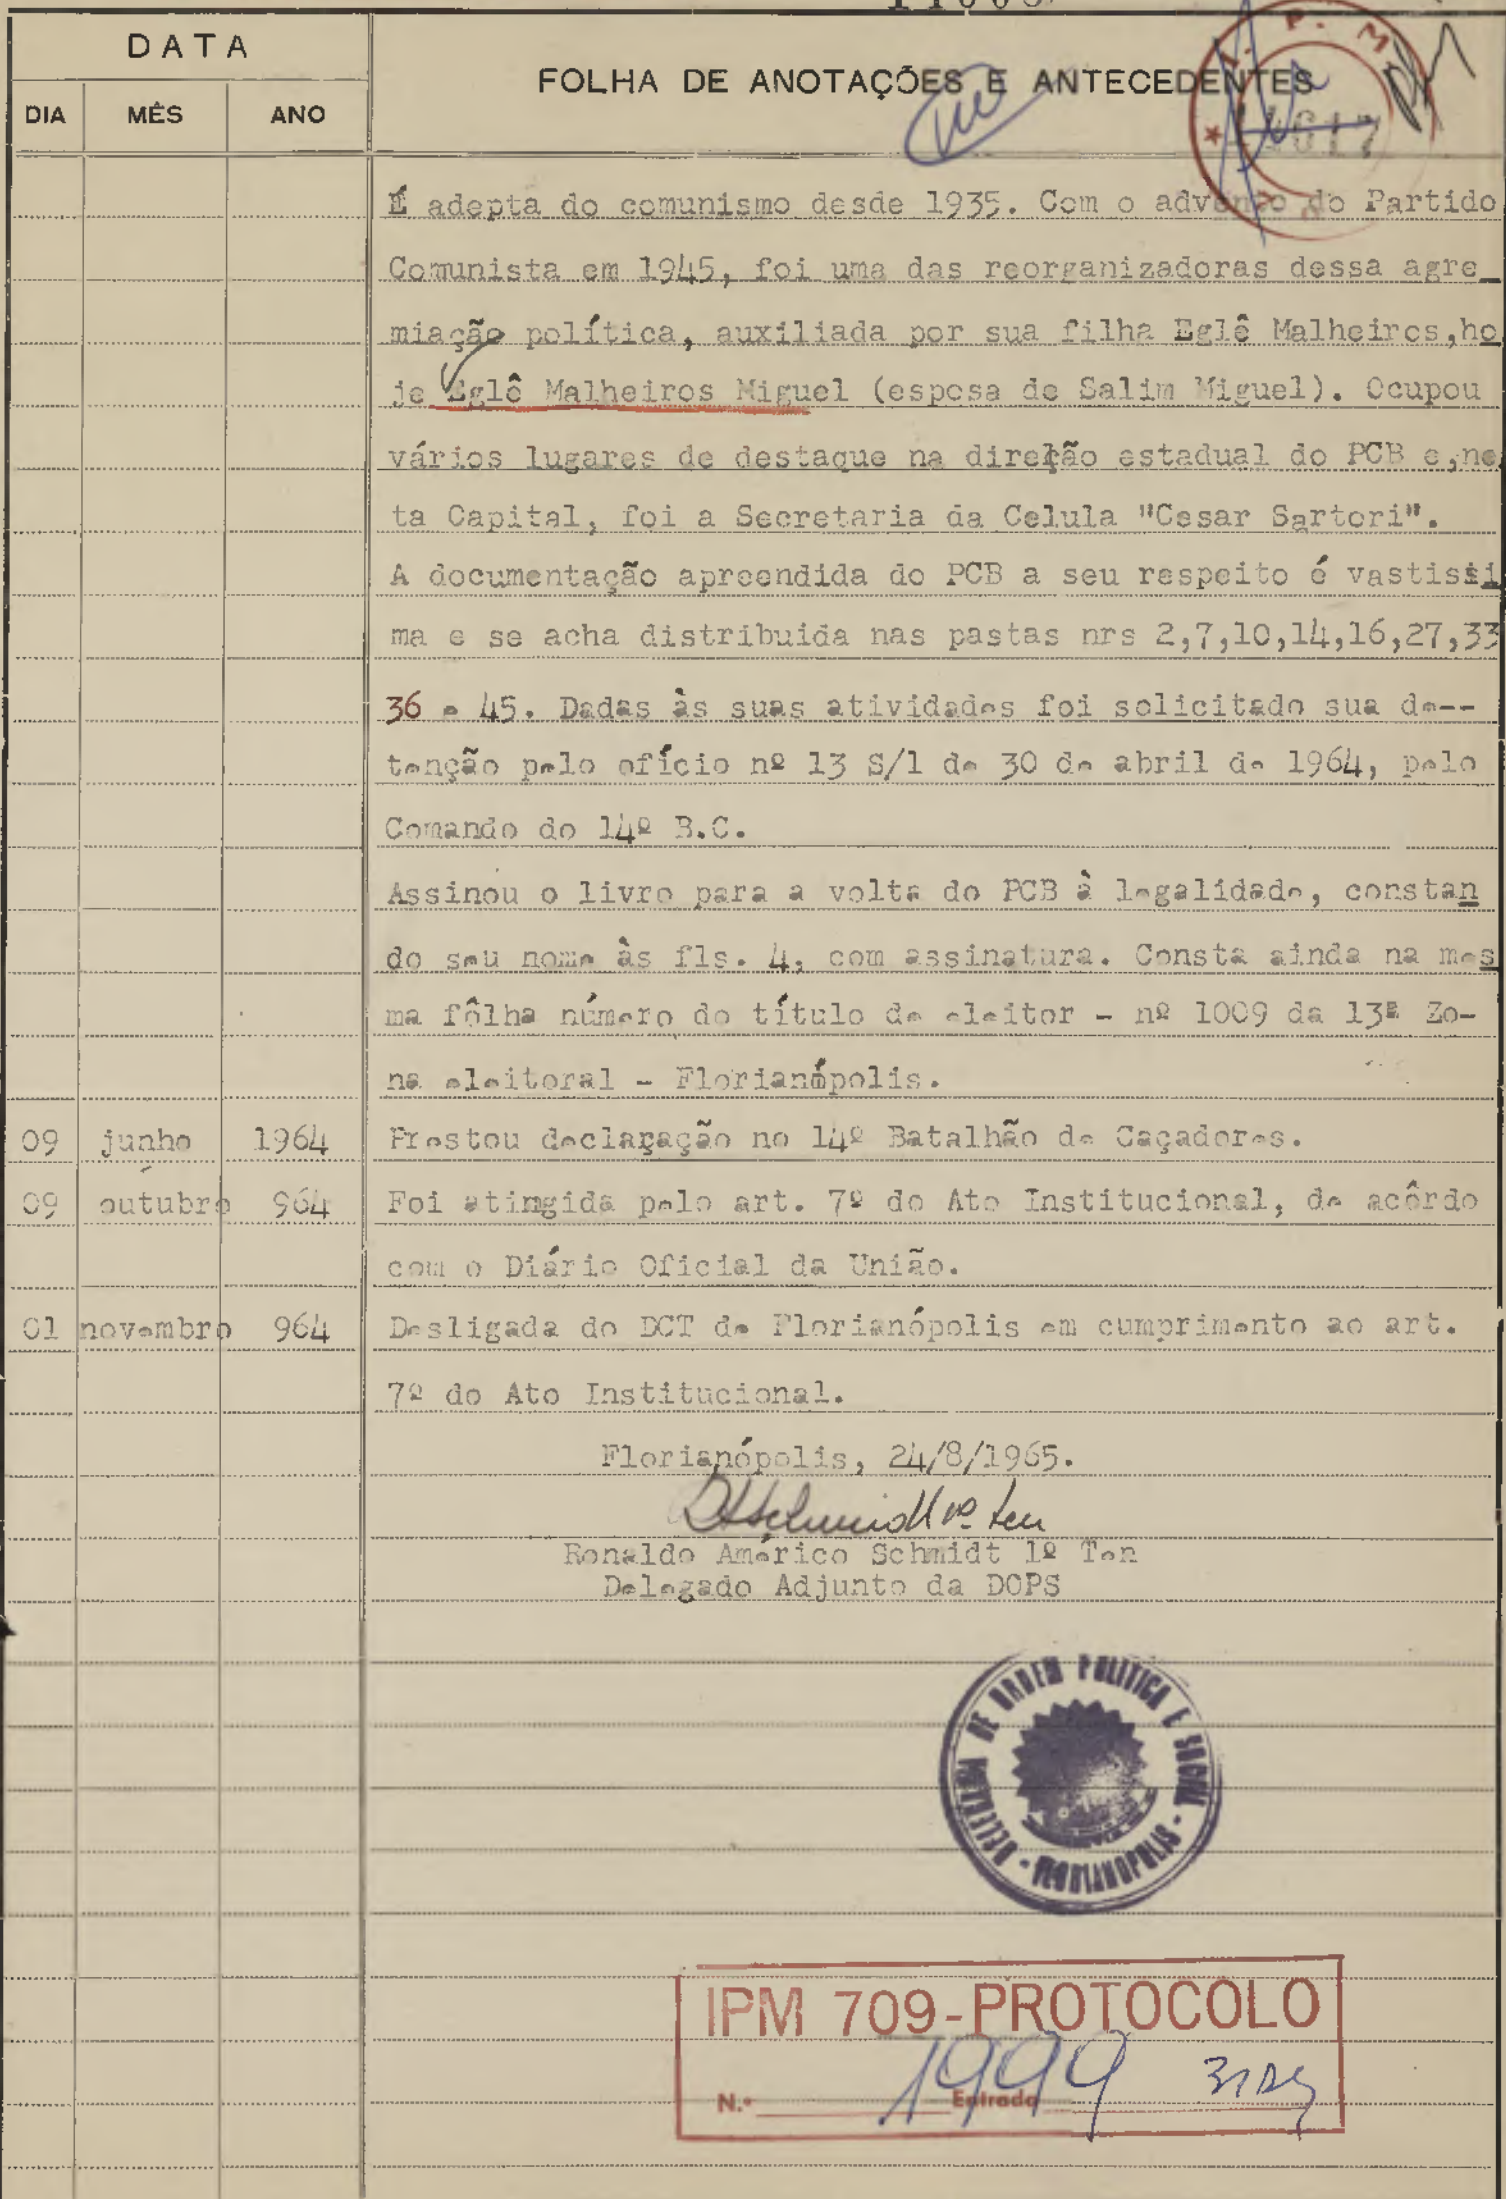 DATA
FOLHA DE ANOTAÇÕES E ANTECEDENTES
DIA MÊS ANO
I. P. M.
14617
É adepta do comunismo desde 1935. Com o advento do Partido
Comunista em 1945, foi uma das reorganizadoras dessa agre_
miação política, auxiliada por sua filha Eglê Malheiros,ho
je Eglê Malheiros Miguel (esposa de Salim Miguel). Ocupou
vários lugares de destaque na direlão estadual do PCB e,ne
ta Capital, foi a Secretaria da Celula "Cesar Sartori".
A documentação apreendida do PCB a seu respeito é vastissi
ma e se acha distribuida nas pastas nrs 2,7,10,14,16,27,33
36 e 45. Dadas às suas atividades foi solicitado sua de--
tenção pelo ofício nº 13 S/1 de 30 de abril de 1964, pelo
Comando do 14º B.C.
Assinou o livro para a volta do PCB à legalidade, constan
do seu nome às fls. 4, com assinatura. Consta ainda na mes
ma fôlha número do título de eleitor - nº 1009 da 13ª Zo-
na eleitoral - Florianópolis.
09 junho 1964 Prestou declaração no 14º Batalhão de Caçadores.
09 outubro 964 Foi atingida pelo art. 7º do Ato Institucional, de acôrdo
com o Diário Oficial da União.
01 novembro 964 Desligada do DCT de Florianópolis em cumprimento ao art.
7º do Ato Institucional.
Florianópolis, 24/8/1965.
Schmidt 1º Ten
Ronaldo Américo Schmidt 1º Ten
Delegado Adjunto da DOPS
DELEGACIA DE ORDEM POLITICA E SOCIAL - FLORIANOPOLIS -
IPM 709-PROTOCOLO
N.º 1999 Entrada